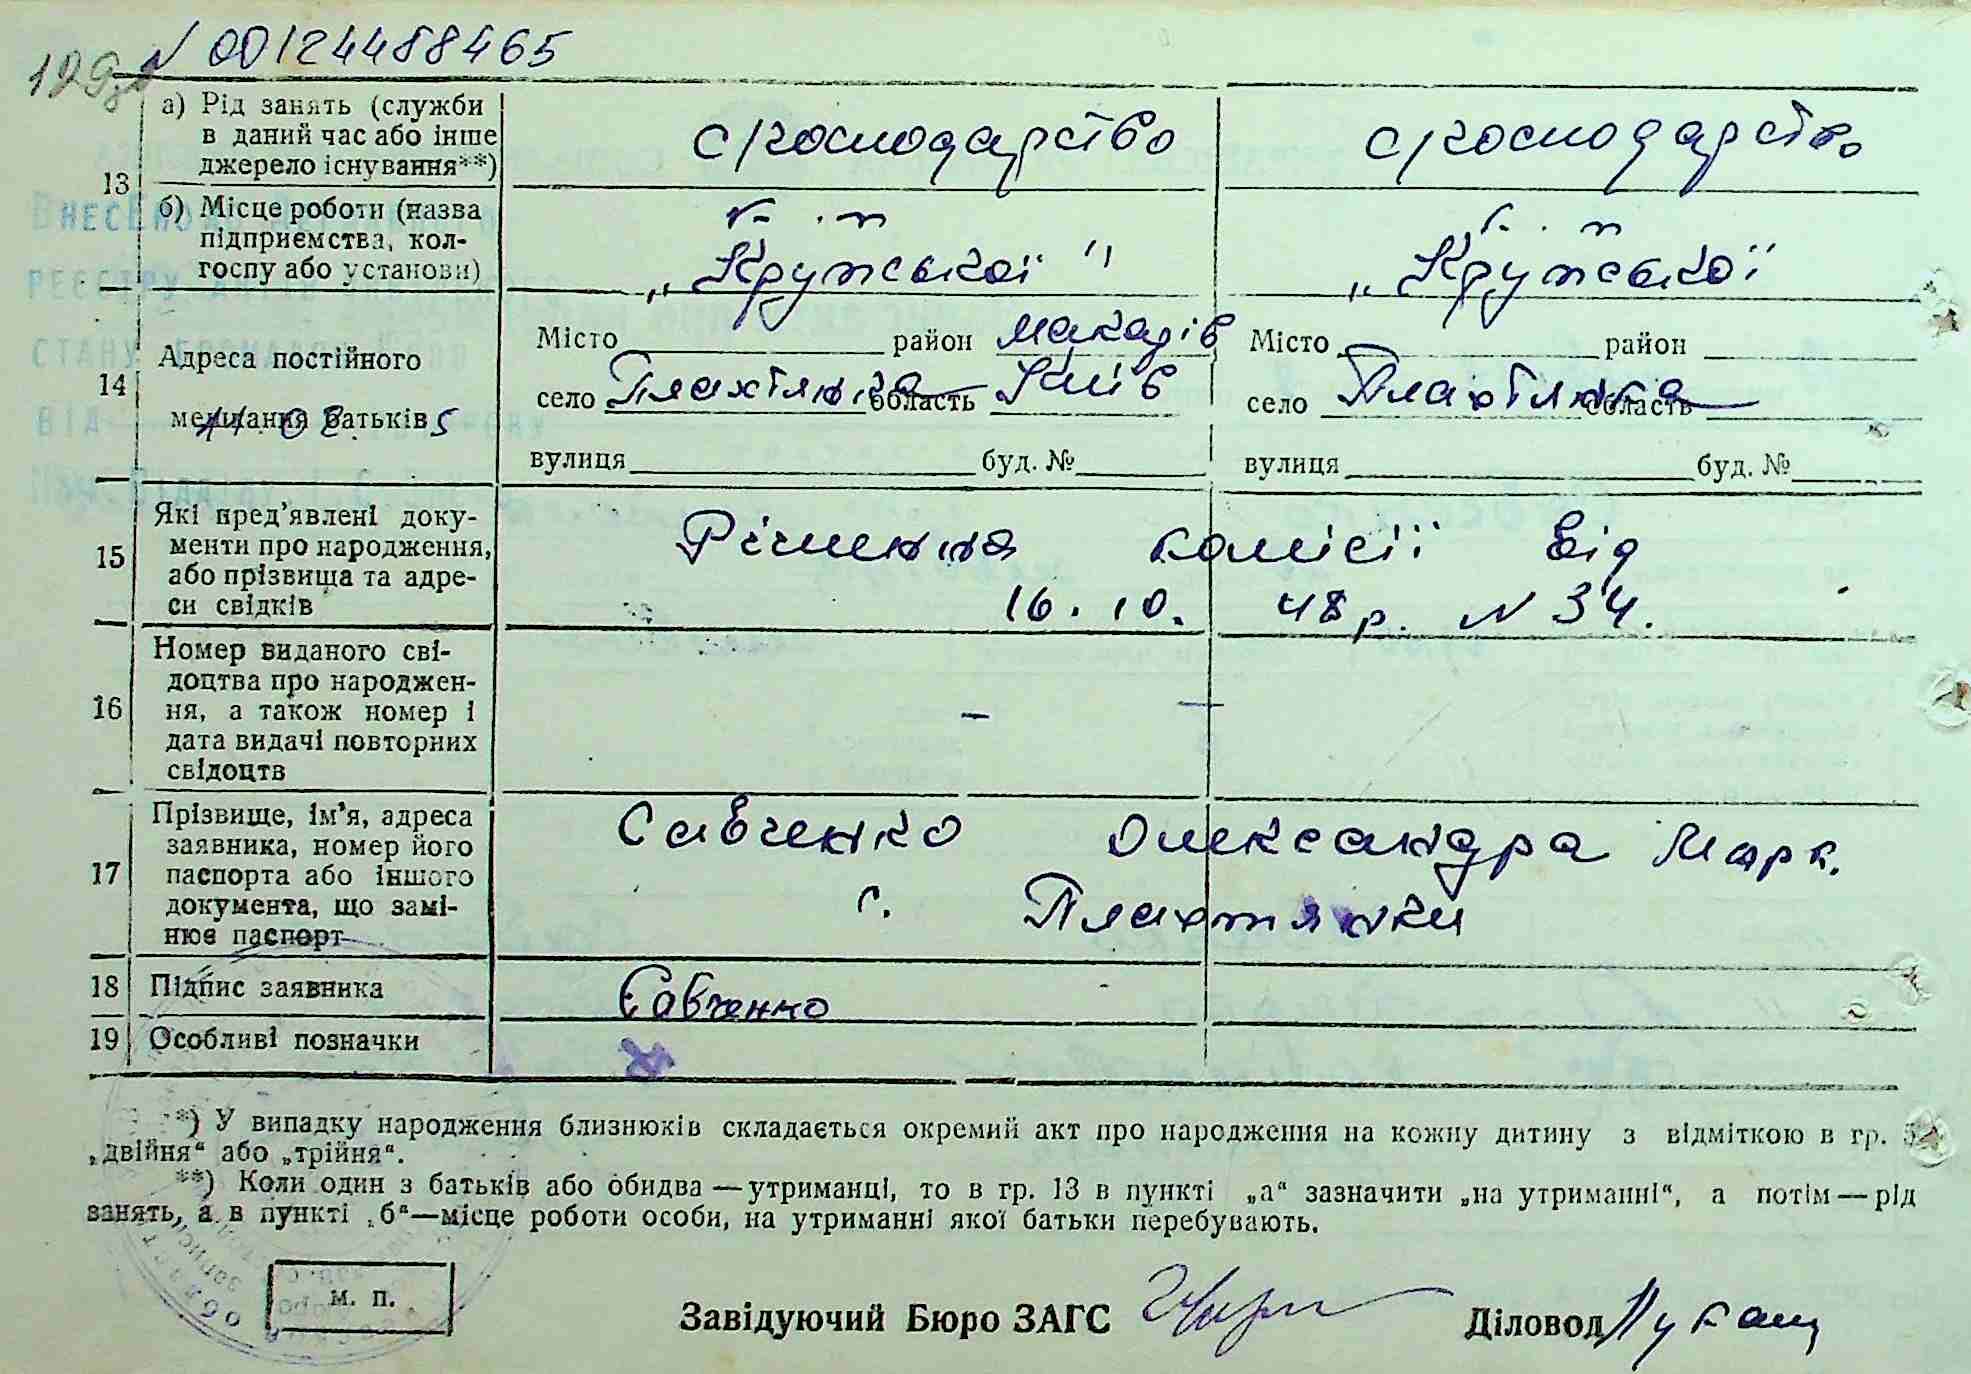 N 00124488465
129
13
а) Рід занять (служби в даний час або інше джерело існування**)
с/господарство
с/господарство
б) Місце роботи (назва підприємства, колгоспу або установи)
„Крупської"
„Крупської"
14
Адреса постійного мешкання батьків
Місто район Макарів
село Пляхтянка область Київ
вулиця буд. №
Місто район
село Пляхтянка область
вулиця буд. №
15
Які пред'явлені документи про народження, або прізвища та адреси свідків
Рішення комісії від
16. 10. 48 р. N 34.
16
Номер виданого свідоцтва про народження, а також номер і дата видачі повторних свідоцтв
– –
17
Прізвище, ім'я, адреса заявника, номер його паспорта або іншого документа, що замінює паспорт
Савченко Олександра Марк.
с. Пляхтянки
18
Підпис заявника
Савченко
19
Особливі позначки
*) У випадку народження близнюків складається окремий акт про народження на кожну дитину з відміткою в гр. 5
„двійня“ або „трійня“.
**) Коли один з батьків або обидва — утриманці, то в гр. 13 в пункті „а“ зазначити „на утриманні“, а потім — рід
занять, а в пункті „б“—місце роботи особи, на утриманні якої батьки перебувають.
м. п.
Завідуючий Бюро ЗАГС
Діловод